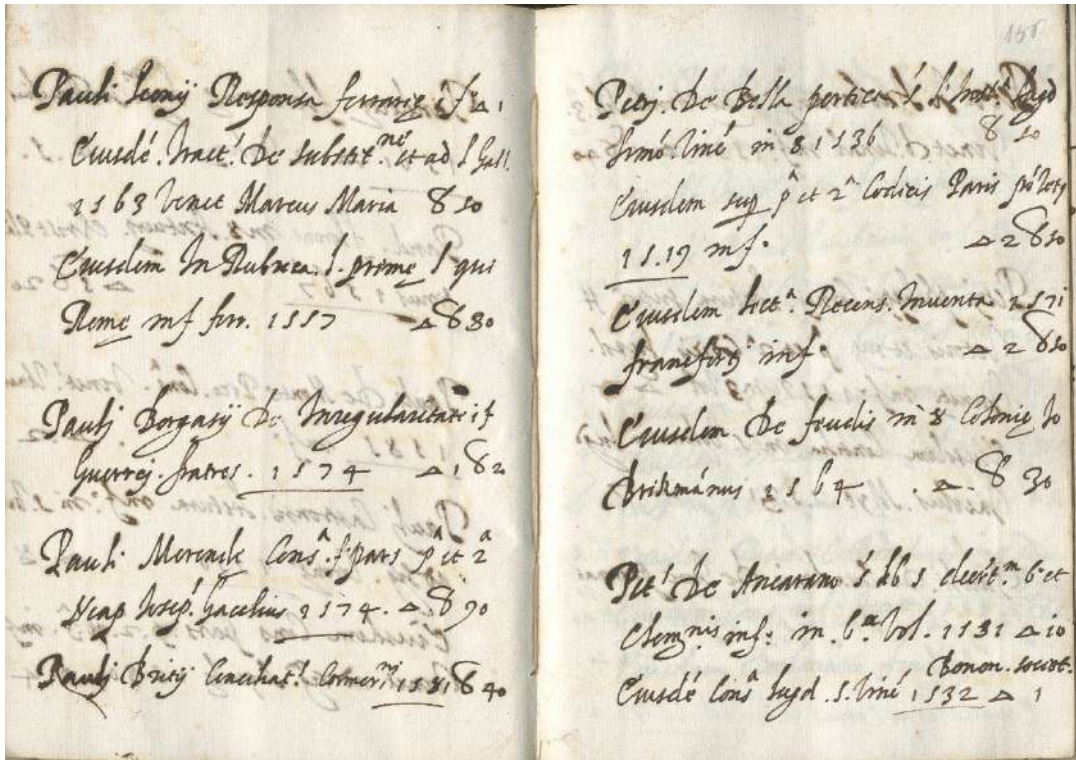 Pauli Leonij Responsa ferrarie i f. Δ 1
Eiusdé. tract. De substit.ne et ad l Gall.
1563 Venet Marcus Maria 8 50
Eiusdem In Rubrica. l. preme l qui
Rome inf ferr. 1557 Δ 8 80
Pauli Borgasij De Inregularitati i f
Guerrej. fratres. 1574 Δ 1 8 2
Pauli Merende Consa. pars pa et 2a
Neap Josep. Cacchius 1574. Δ. 8 90
Pauli Britij 1581 8 40
155
Petrj. De Bella pertica
Simó. Viné in 8 1536 8 50
Eiusdem sup pa et 2a Codicis Paris
1519 inf. Δ 2 8 50
Eiusdem lecta. Recens. Inventa 1571
francofort inf. Δ 2 8 50
Eiusdem De feudis in 8 Colonie Jo
Brikmánus 1564 Δ. 8 30
Pet. De Ancarano s lib s decret.m 6 et
Clemnis inf. in. 6. Vol. 1581 Δ 10
Bonon. societ.
Eiusdé Consa Lugd. S. Viné 1532 Δ 1